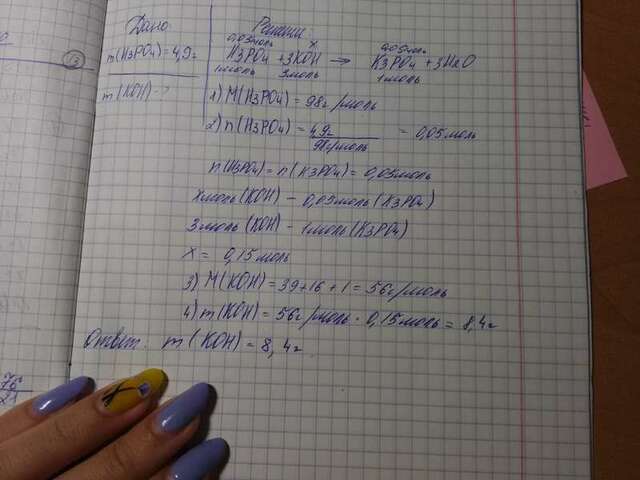 Дано:
m(H3PO4) = 4,9г
m(KOH) - ?
Решение:
0,05моль x 0,05моль
H3PO4 + 3KOH → K3PO4 + 3H2O
1моль 3моль 1моль
1) M(H3PO4) = 98г/моль
2) n(H3PO4) = 4,9г / 98г/моль = 0,05моль
n(H3PO4) = n(K3PO4) = 0,05моль
x моль (KOH) - 0,05моль (K3PO4)
3 моль (KOH) - 1моль (K3PO4)
x = 0,15моль
3) M(KOH) = 39+16+1 = 56г/моль
4) m(KOH) = 56г/моль · 0,15моль = 8,4г
Ответ: m(KOH) = 8,4г
76
21